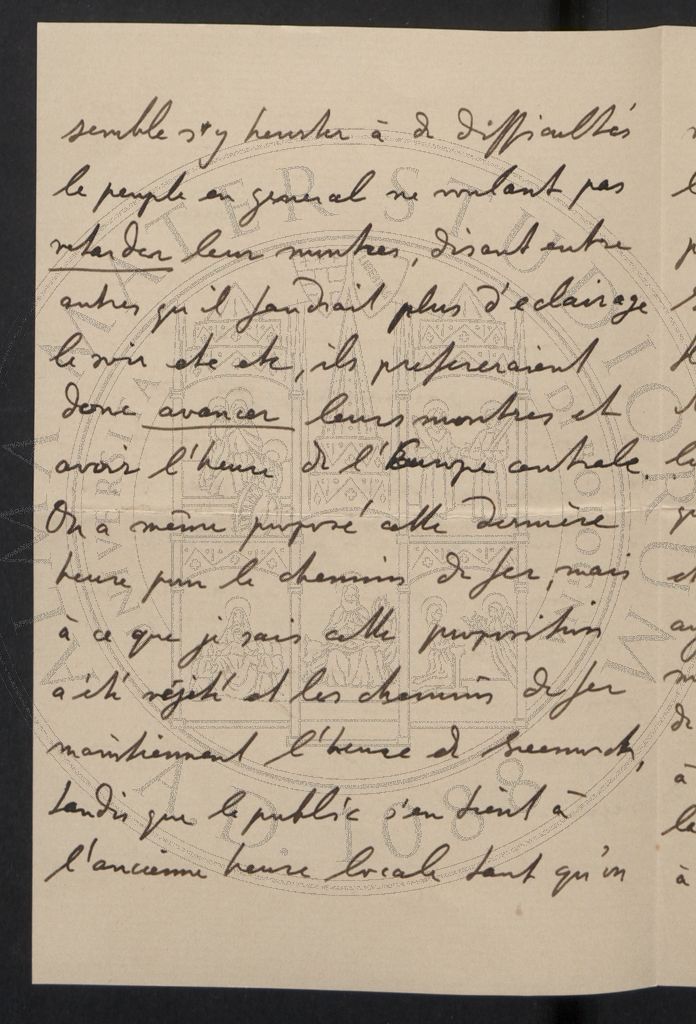 semble s'y heurter à de difficultés
le peuple en general ne voulant pas
retarder leur montres, disant entre
autres qu'il faudrait plus d'eclairage
le soir etc etc, ils prefereraient
donc avancer leurs montres et
avoir l'heure de l'Europe centrale.
On a même proposé cette dernière
heure pour le chemins de fer, mais
à ce que je sais cette proposition
a été réjété et les chemins de fer
maintiennent l'heure de Greenwich,
tandis que le public s'en tient à
l'ancienne heure locale tant qu'on
ALMA MATER STUDIORUM
A.D. 1088